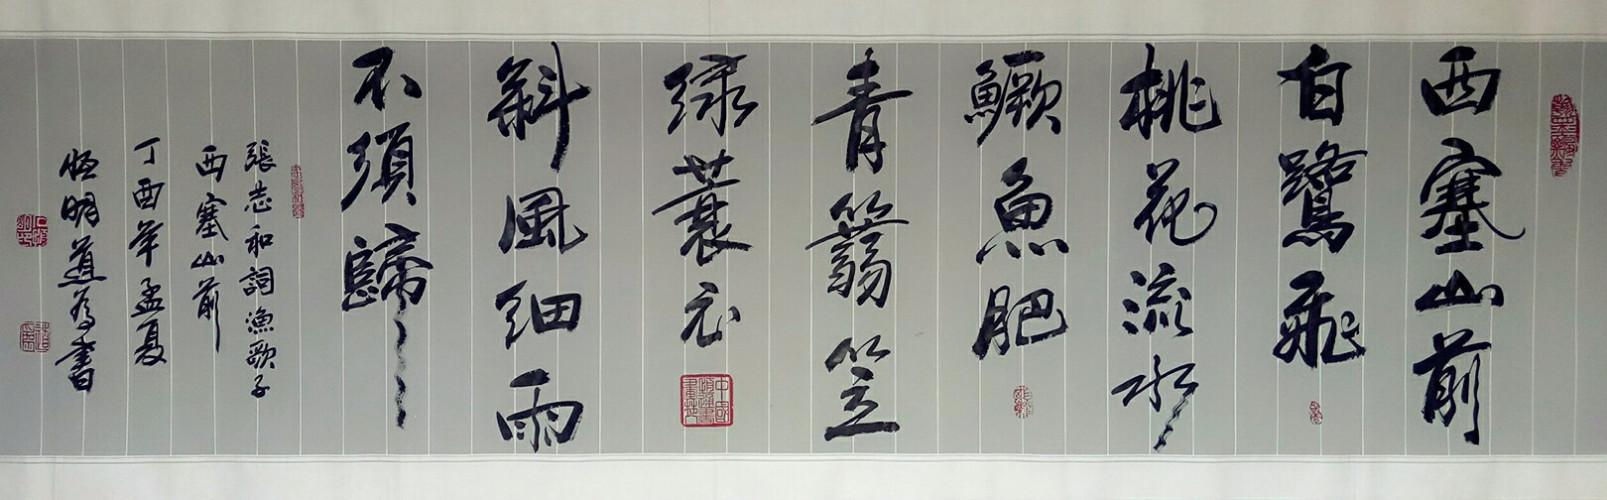 西塞山前
白鷺飛
桃花流水
鱖魚肥
青篛笠
绿蓑衣
斜風细雨
不須歸
張志和詞漁歌子
西塞山前
丁酉年孟夏
恆明道為書